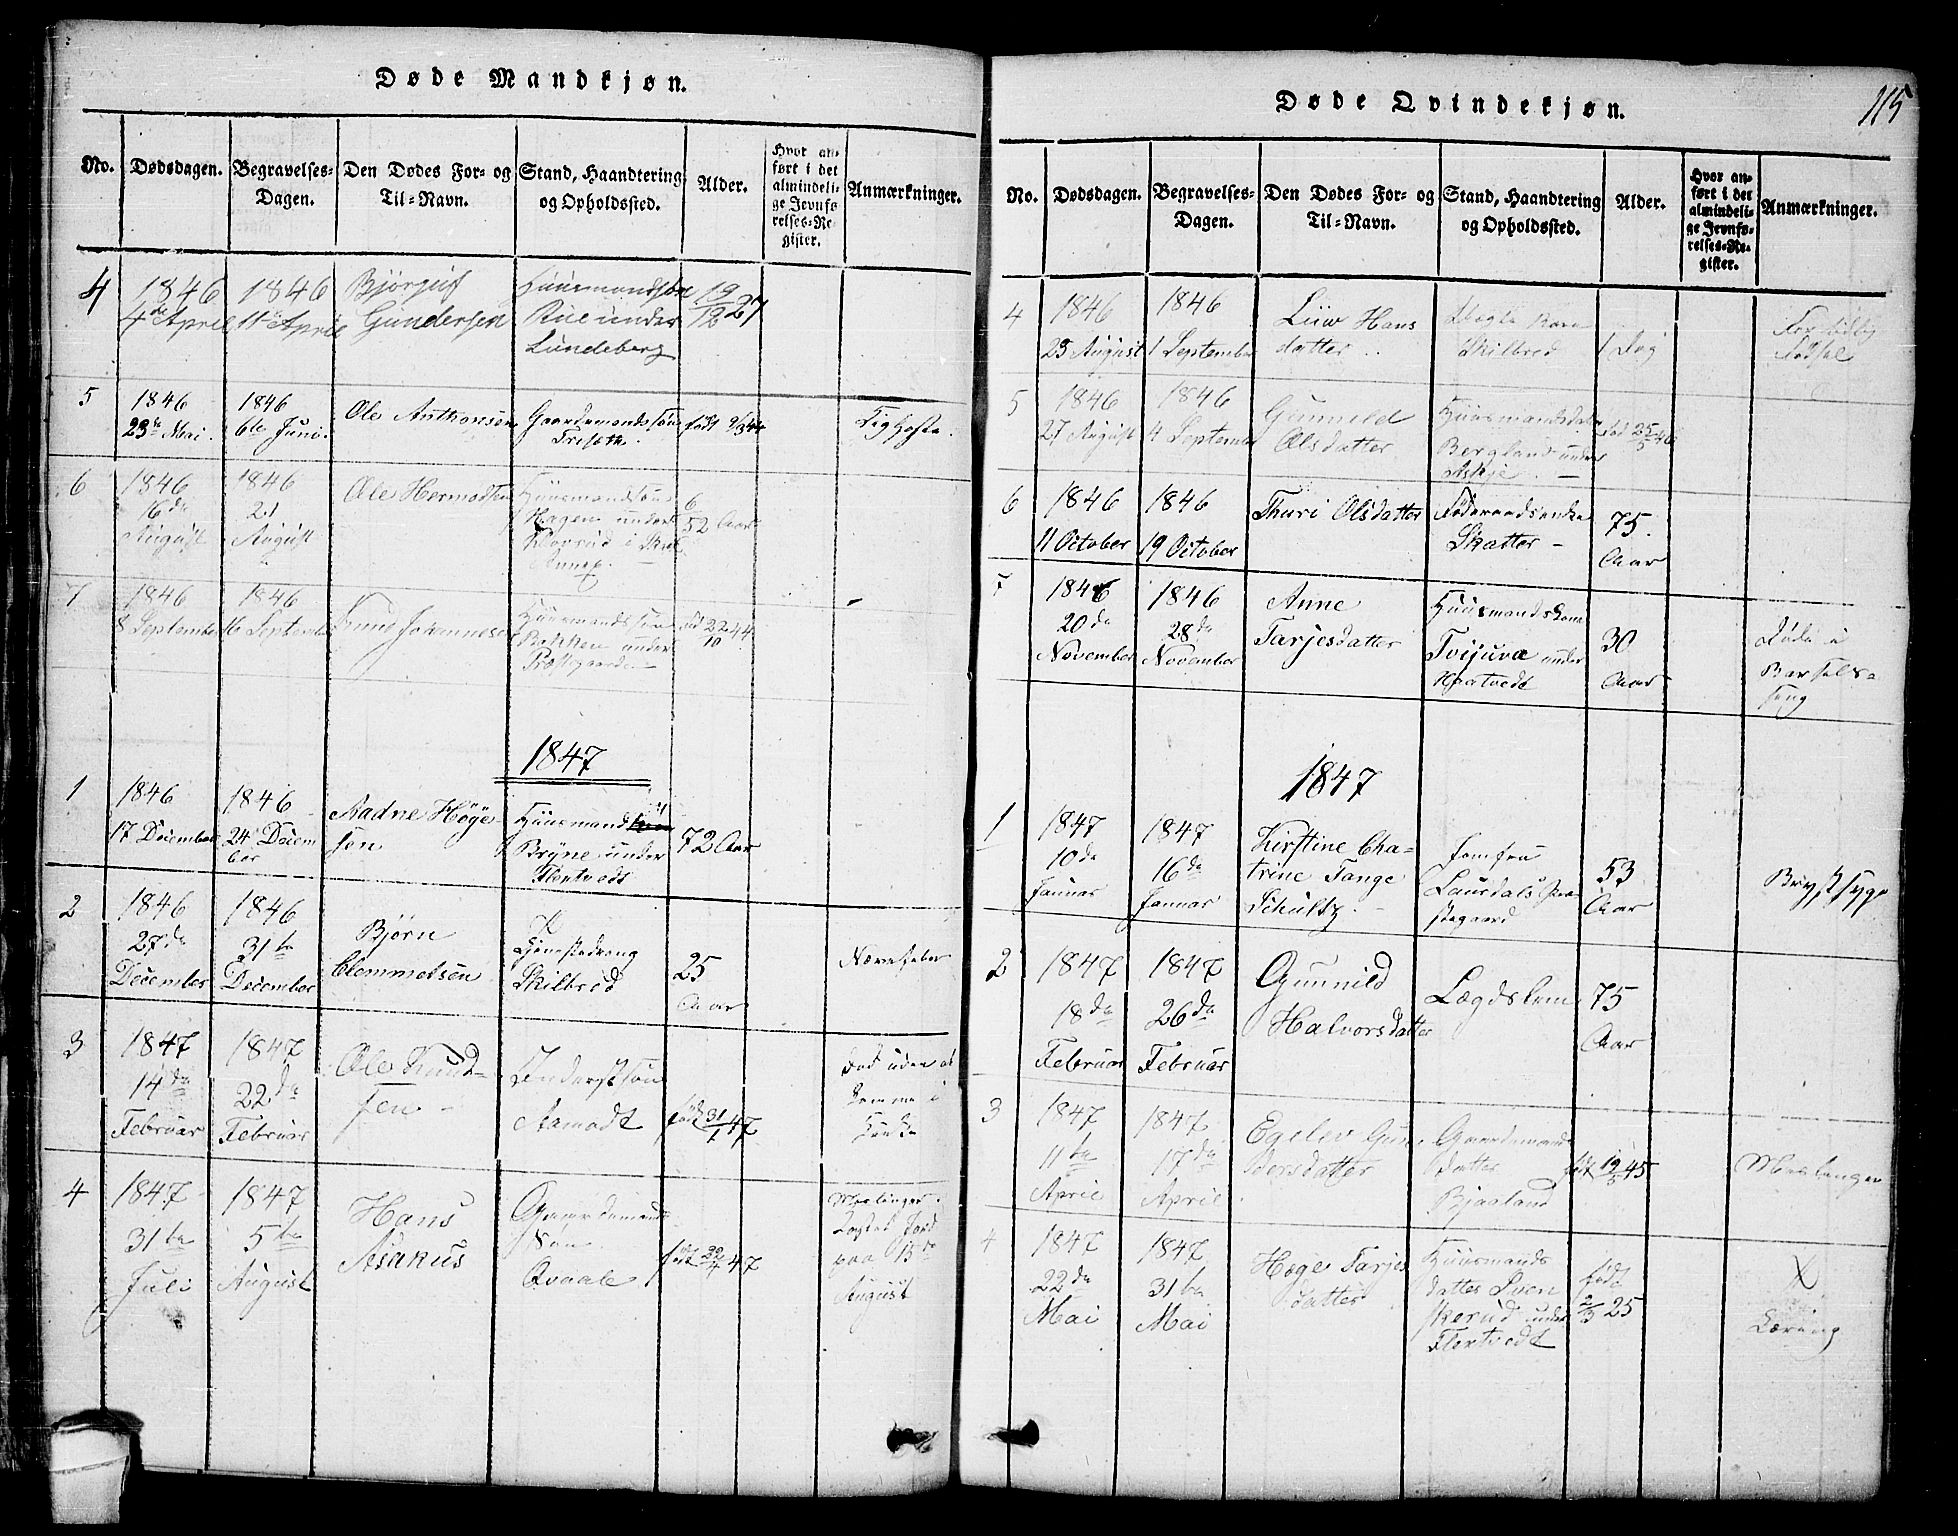 Døde Mandkjøn.
No. Dødsdagen. Begravelses-Dagen. Den Dødes For- og Til-Navn. Stand, Haandtering og Opholdssted. Alder. Hvor anført i det almindelige Jevnførelses-Register. Anmærkninger.
4 1846 1846 Bjørguf Huusmandssøn 19
4de April 11te April Gundersen Rue under 12 27
Lundeberg
5 1846 1846 Ole Anthonsen Gaardemandssøn født 44
23de Mai. 6te Juni. Kighoste
6 1846 1846 Ole Hermodsen Huusmandssøn 52 Aar
16de 21 Hagen under
August August
Annex.
7 1846 1846 Knud Johannesen Huusmandssøn 22 44
8 September 16 September Bekken under 10
Præstgaarden
1847
1 1846 1846 Aadne Høye Huusmand 72 Aar
17 December 24 Decem sen Bryne under
ber Flertvedt
2 1846 1846 Bjørn Tjenestedreng 25
27de 31te Clemmetsen Skilbred Aar Nervefeber
December December
3 1847 1847 Ole Knud- Inderstsøn Død uden at
14de 22de sen Aamodt født 31/1 47
Februar Februar
4 1847 1847 Hans Gaardemands Meslinger.
31te 5te Asakus Søn født 22/7 47 paa 15de
Juli August Qvaale August
Døde Qvindekjøn. 115
No. Dødsdagen. Begravelses-Dagen. Den Dødes For- og Til-Navn. Stand, Haandtering og Opholdssted. Alder. Hvor anført i det almindelige Jevnførelses-Register. Anmærkninger.
4 1846 1846 Liiw Hans
25 August 1 September datter Skilbred 1 Dag Fødsel
5 1846 1846 Gunnild Huusmandsdatter 25 46
27 August 4 September Olsdatter Bergland under 5
Askje
6 1846 1846 Thuri Olsdatter Føderaadsenke 75
11 October 19 October Skatter Aar
7 1846 1846 Anne Huusmandskone 30 Døde i
20de 28de Tarjesdatter Tvijuva under Aar Barsels-
November November Hertvedt seng
1847
1 1847 1847 Kirstine Cha- Jomfru 53
10de 16de trine Tange Laurdals Præ- Aar Brystsyge
Januar Januar Schultz stegaard
2 1847 1847 Gunnild Lægdslem 75
18de 26de Halvorsdatter Aar
Februar Februar
3 1847 1847 Egelev Gun Gaardemands
11te 17de dersdatter datter født 19/5 45 Meslinger
April April Bjaaland
4 1847 1847 Høge Tarjes Huusmands født X
22de 31te datter datter Sven 2/3 25
Mai Mai skerud under
Flertvedt